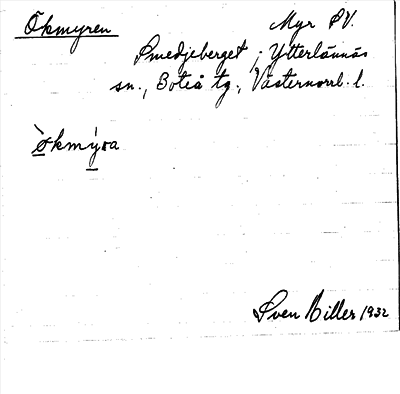 Ökmyren Myr SV.
Smedjeberget, Ytterlännäs
sn., Boteå tg., Västernorrl. l.
ø̀kmýra
Sven Hiller 1932